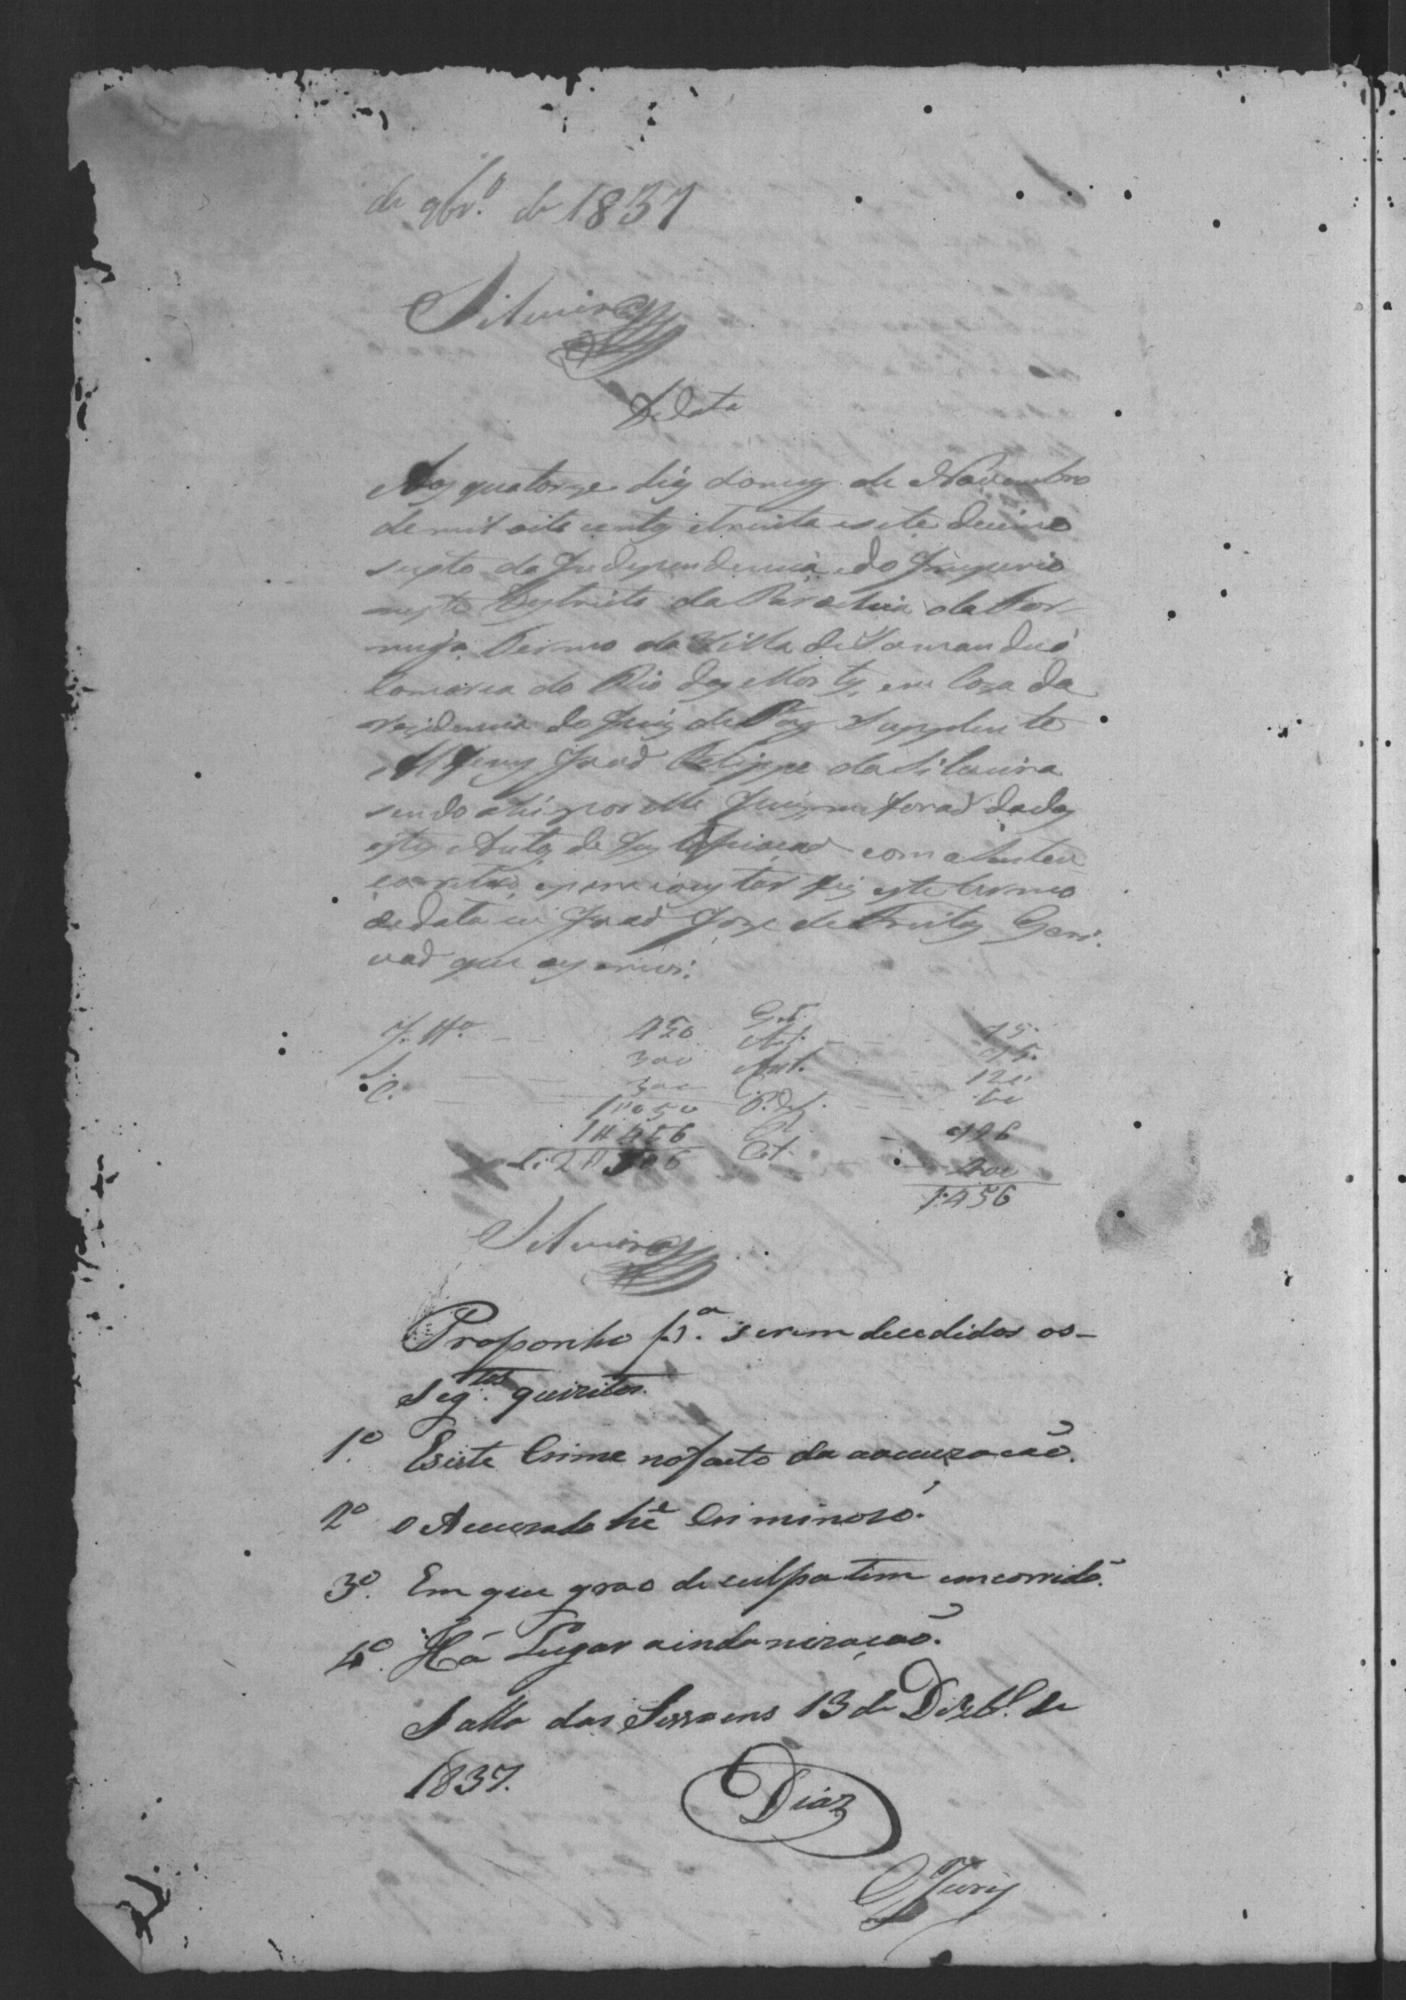 de 9br.º de 1837
Silveira
De data
Aos quatorze dias domes de Novembro
de mil oito centos etrinta esete decimo
sexto da Independencia edo Imperio
neste Destricto da Parochia da For-
miga Termo da Villa de Tamanduá
Comarca do Rio das Mortes, em Caza da
rezidencia do Juiz de Paz Supplente
Alferes Joaõ Felippe da Silveira
sendo ahi por elle Juiz me foraõ dados
estes Autos de com a Sentença
e para constar fiz este termo
de data eu Joaõ Joze de Freitas Escri-
vaõ que escrevi.
J. H.º 450
J. 300
C. 300
1"050
1#456
2#506
75
75
120
60
926
200
1:456
Silveira
Proponho p.ª serem decedidos os-
seg.tes quizitos.
1º. Esiste Crime nofacto da acuzacaõ.
2º o Acuzado hé Criminozo.
3º. Em que grao de culpa tem emcorrido.
4º. Há Lugar aindanizaçaõ.
Salla das Sessoens 13 de Dezbr.º de
1837.
Diaz
Jury